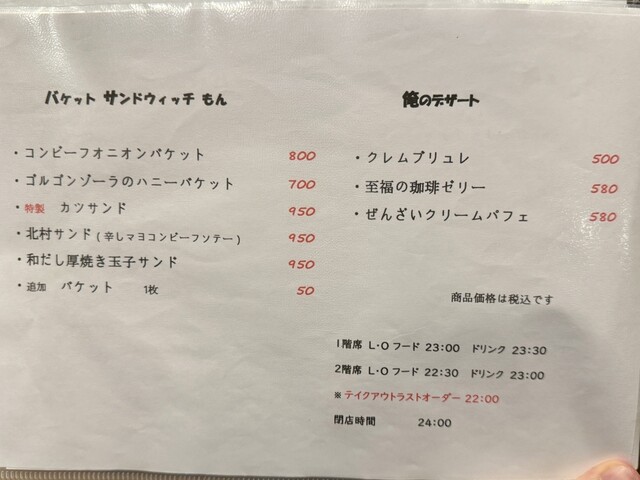 バケット サンドウィッチ もん
・コンビーフオニオンバケット 800
・ゴルゴンゾーラのハニーバケット 700
・特製 カツサンド 950
・北村サンド(辛しマヨコンビーフソテー) 950
・和だし厚焼き玉子サンド 950
・追加 バケット 1枚 50
俺のデザート
・クレムブリュレ 500
・至福の珈琲ゼリー 580
・ぜんざいクリームパフェ 580
商品価格は税込です
1階席 L・O フード 23:00 ドリンク 23:30
2階席 L・O フード 22:30 ドリンク 23:00
※テイクアウトラストオーダー 22:00
閉店時間 24:00